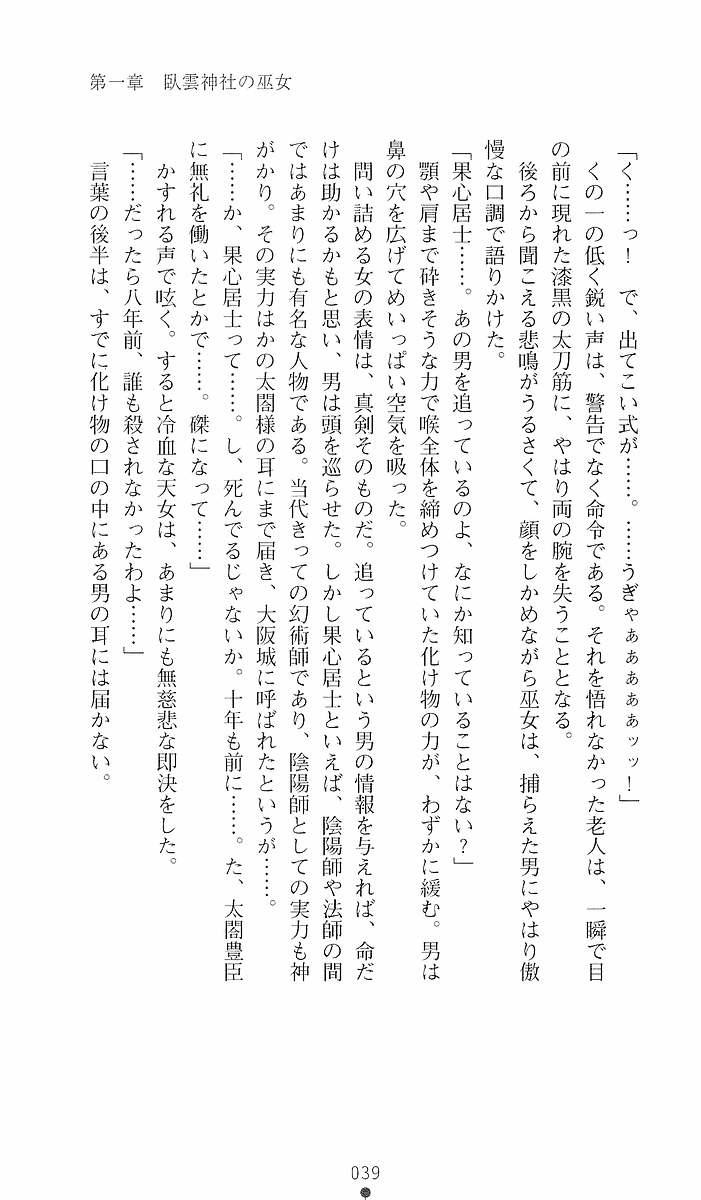 第一章　臥雲神社の巫女
「く……っ！　で、出てこい式が……。……うぎゃぁぁぁぁぁッッ！」
　くの一の低く鋭い声は、警告でなく命令である。それを悟れなかった老人は、一瞬で目
の前に現れた漆黒の太刀筋に、やはり両の腕を失うこととなる。
　後ろから聞こえる悲鳴がうるさくて、顔をしかめながら巫女は、捕らえた男にやはり傲
慢な口調で語りかけた。
「果心居士……。あの男を追っているのよ、なにか知っていることはない？」
　顎や肩まで砕きそうな力で喉全体を締めつけていた化け物の力が、わずかに緩む。男は
鼻の穴を広げてめいっぱい空気を吸った。
　問い詰める女の表情は、真剣そのものだ。追っているという男の情報を与えれば、命だ
けは助かるかもと思い、男は頭を巡らせた。しかし果心居士といえば、陰陽師や法師の間
ではあまりにも有名な人物である。当代きっての幻術師であり、陰陽師としての実力も神
がかり。その実力はかの太閤様の耳にまで届き、大阪城に呼ばれたというが……。
「……か、果心居士って……。し、死んでるじゃないか。十年も前に……。た、太閤豊臣
に無礼を働いたとかで……。磔になって……」
　かすれる声で呟く。すると冷血な天女は、あまりにも無慈悲な即決をした。
「……だったら八年前、誰も殺されなかったわよ……」
　言葉の後半は、すでに化け物の口の中にある男の耳には届かない。
039